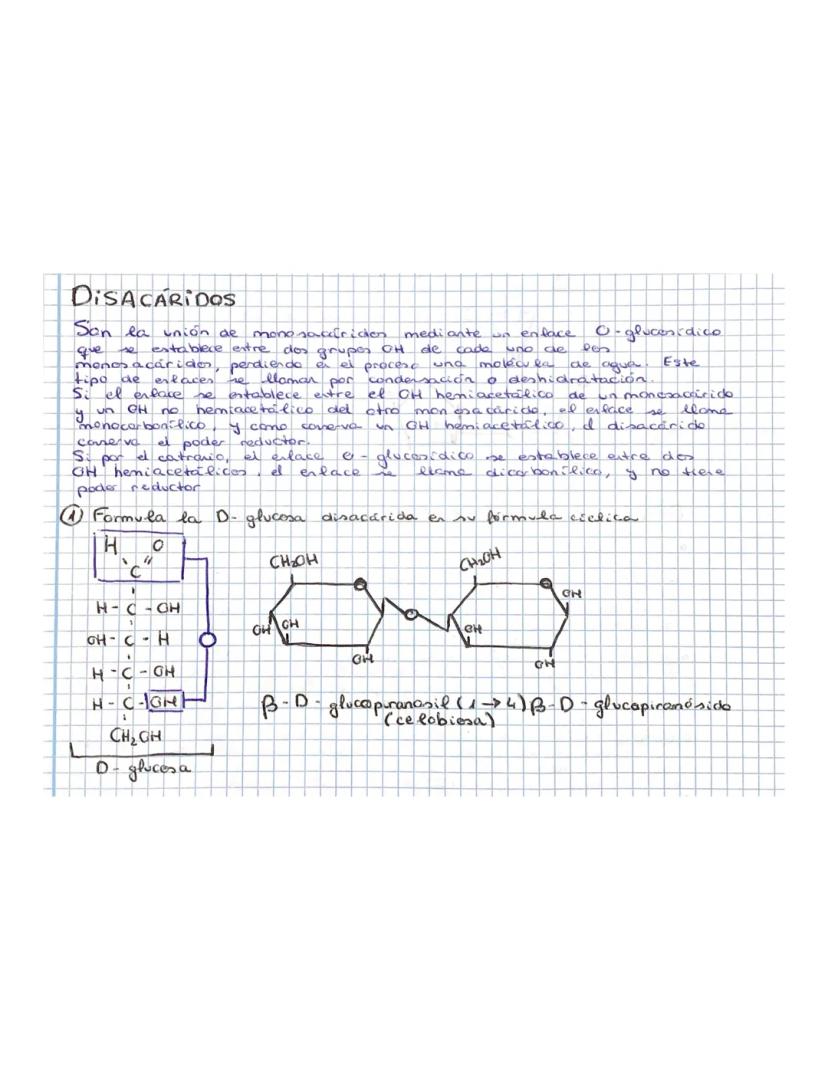 DiSACÁRiDOS
Son la unión de monosacáridos mediante un enlace O-glucosídico
que se establece entre dos grupos OH de cada uno de los
monosacáridos, perdiendo en el proceso una molécula de agua. Este
tipo de enlaces se llaman por condensación o deshidratación.
Si el enlace se establece entre el OH hemiacetálico de un monosacárido
y un OH no hemiacetálico del otro monosacárido, el enlace se llama
monocarbonílico, y como conserva un OH hemiacetálico, el disacárido
conserva el poder reductor.
Si por el contrario, el enlace o-glucosídico se establece entre dos
OH hemiacetálicos, el enlace se llama dicarbonílico, y no tiene
poder reductor
1 Formula la D-glucosa disacárida en su fórmula cíclica
H O
C
H - C - OH
OH - C - H
H - C - OH
H - C - OH
CH2OH
D-glucosa
CH2OH
OH OH
OH
O
CH2OH
OH
OH
OH
β-D-glucopiranosil (1→4) β-D-glucopiranósido
(celobiosa)